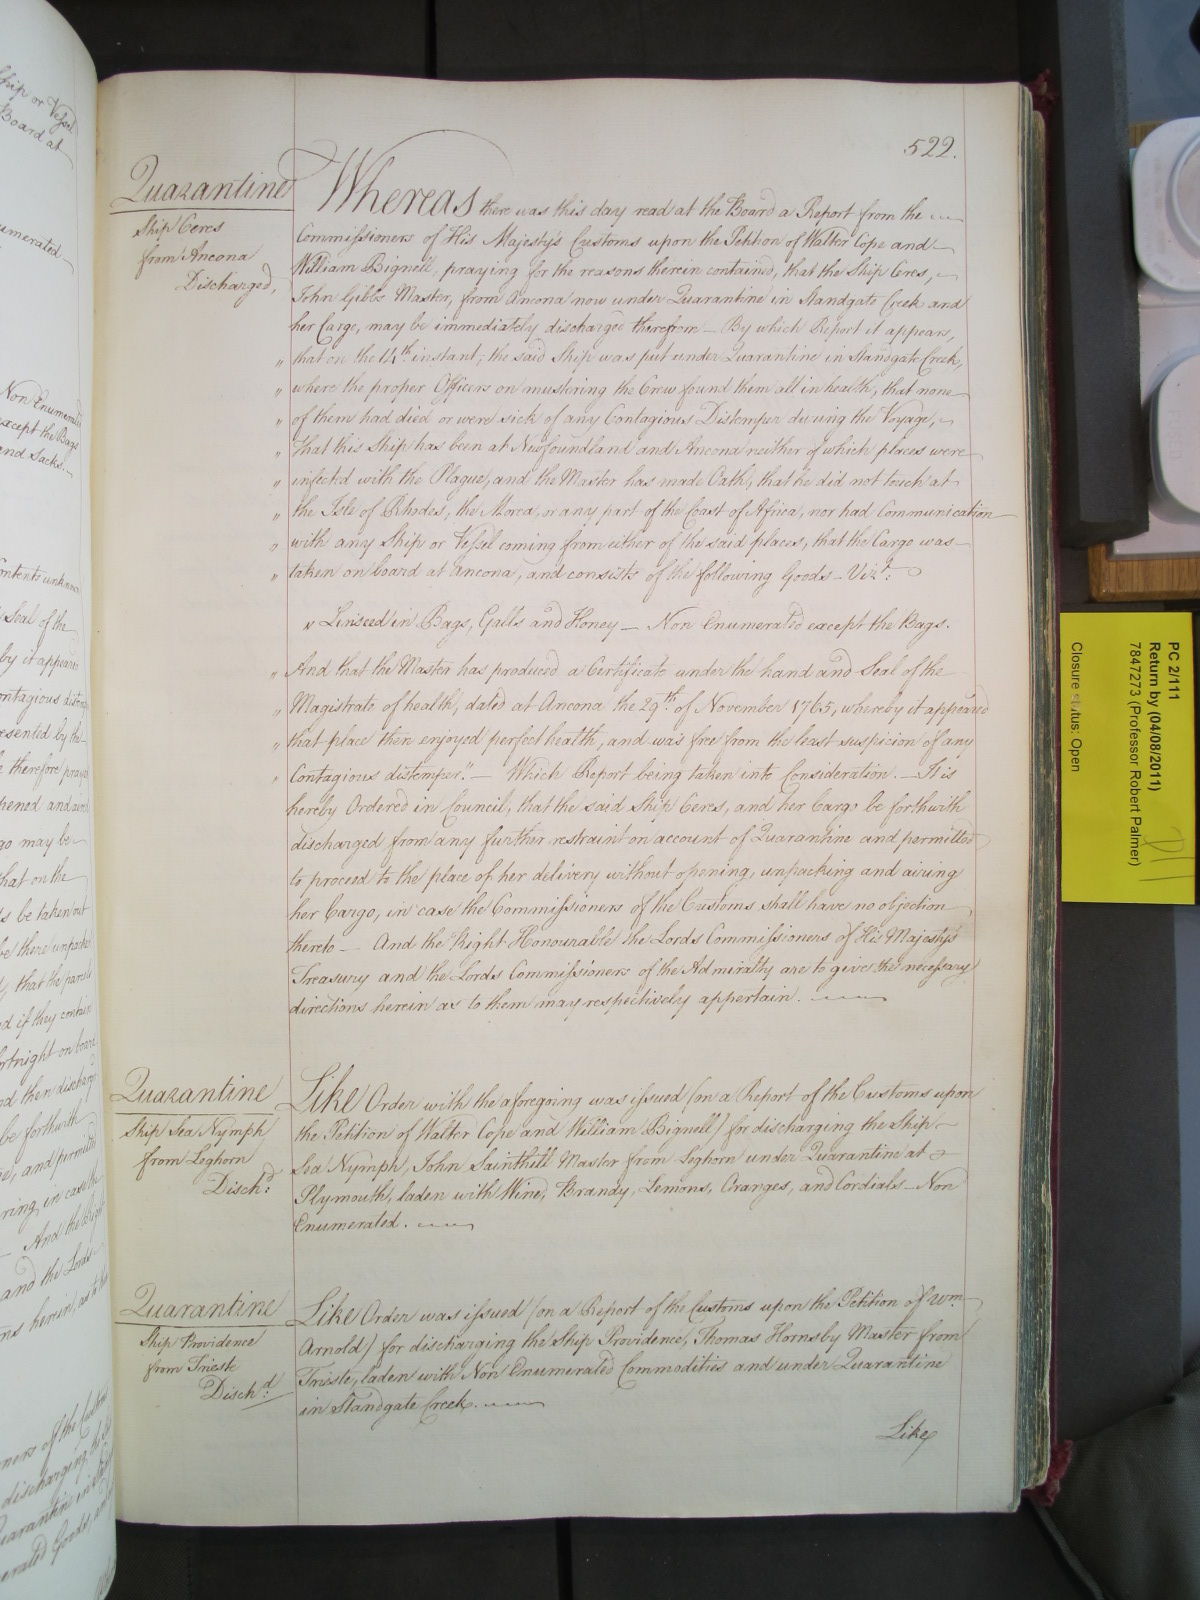 522.
Quarantine
Ship Ceres
from Ancona
Discharged,
Whereas there was this day read at the Board a Report from the
Commissioners of His Majesty's Customs upon the Petition of Walter Cope and
William Bignell, praying for the reasons therein contained, that the Ship Ceres,
John Gibbs Master, from Ancona now under Quarantine in Standgate Creek and
her Cargo, may be immediately discharged therefrom — By which Report it appears,
" that on the 14th instant; the said Ship was put under Quarantine in Standgate Creek,
" where the proper Officers on mustering the Crew found them all in health, that none
" of them had died or were sick of any Contagious Distemper during the Voyage,
" That this Ship has been at Newfoundland and Ancona neither of which places were
" infected with the Plague, and the Master has made Oath, that he did not touch at
" the Isle of Rhodes, the Morea, or any part of the Coast of Africa, nor had Communication
" with any Ship or Vessel coming from either of the said places, that the Cargo was
" taken on board at Ancona, and consists of the following Goods — Vizt:
" Linseed in Bags, Galls and Honey — Non Enumerated except the Bags.
" And that the Master has produced a Certificate under the hand and Seal of the
" Magistrate of health, dated at Ancona the 29th. of November 1765, whereby it appeared
" that place then enjoyed perfect health, and was free from the least suspicion of any
" Contagious distemper." — Which Report being taken into Consideration. — It is
hereby Ordered in Council, that the said Ship Ceres, and her Cargo be forthwith
discharged from any further restraint on account of Quarantine and permitted
to proceed to the place of her delivery without opening, unpacking and airing
her Cargo, in case the Commissioners of the Customs shall have no objection
thereto — And the Right Honourable the Lords Commissioners of His Majesty's
Treasury and the Lords Commissioners of the Admiralty are to give the necessary
directions herein as to them may respectively appertain.
Quarantine
Ship Sea Nymph
from Leghorn
Dischd:
Like Order with the aforegoing was issued (on a Report of the Customs upon
the Petition of Walter Cope and William Bignell) for discharging the Ship
Sea Nymph, John Sainthill Master from Leghorn under Quarantine at
Plymouth, laden with Wine, Brandy, Lemons, Oranges, and Cordials — Non
Enumerated.
Quarantine
Ship Providence
from Trieste
Dischd:
Like Order was issued (on a Report of the Customs upon the Petition of Wm.
Arnold) for discharging the Ship Providence, Thomas Hornsby Master from
Trieste, laden with Non Enumerated Commodities and under Quarantine
in Standgate Creek.
Like
PC 2/111
Return by (04/08/2011)
7847273 (Professor Robert Palmer)
Closure status: Open
Ship or Vessel
Board at
Non Enumerated
except the Bags
and Sacks.
Contents unknown
Seal of the
by it appears
go may be
that on the
be taken out
, that the parcels
be forthwith
and the Lords